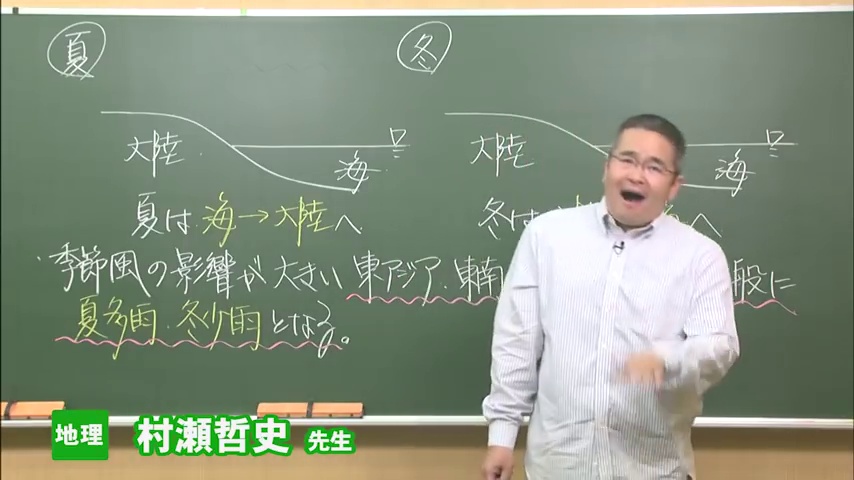 夏
冬
大陸
海
大陸
海
夏は 海→大陸へ
冬は へ
・季節風の影響が大きい 東アジア・東南 般に
夏多雨・冬少雨となる。
地理 村瀬哲史 先生